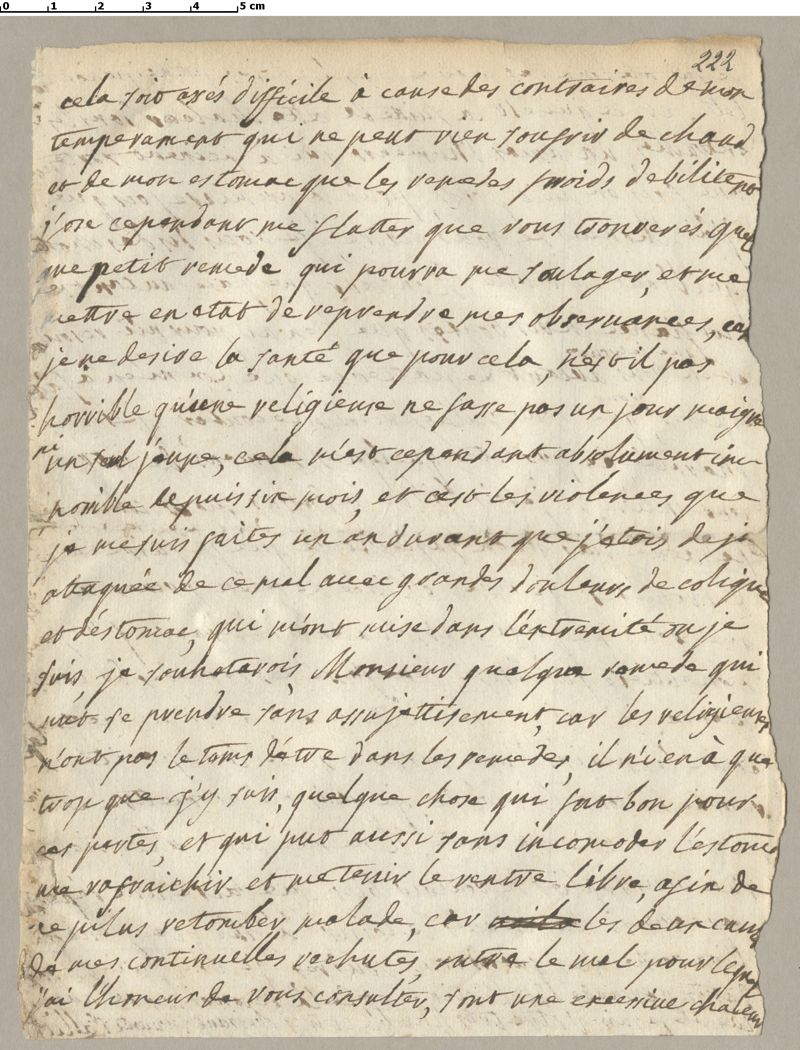 0 1 2 3 4 5 cm
222
cela soit assés difficile à cause des contraires de mon
temperament qui ne peut rien soufrir de chaud
et de mon estomac que les remedes froids debilitent
j'ose cependant me flatter que vous trouverés quel
que petit remede qui pourra me soulager, et me
mettre en etat de reprendre mes observances, car
je ne desire la santé que pour cela, n'est il pas
horrible qu'une religieuse ne fasse pas un jour maigre
ni un seul jeune, cela m'est cependant absolument im-
possible depuis six mois, et c'est les violences que
je me suis faites un an durant que j'etois deja
attaquée de ce mal avec grandes douleurs de colique
et d'estomac, qui m'ont mise dans l'extremité ou je
suis je souhaterois Monsieur quelque remede qui
put se prendre sans assujettisement, car les religieuses
n'ont pas le tems d'être dans les remedes, il n'i en à que
trop que j'y suis, quelque chose qui fut bon pour
ces pertes, et qui put aussi sans incomoder l'estomac
me rafraichir et me tenir le ventre libre, afin de
ne plus retomber malade, car les deux causes
de mes continuelles rechutes, outre le mal pour lequel
j'ai l'honneur de vous consulter, sont une excessive chaleur